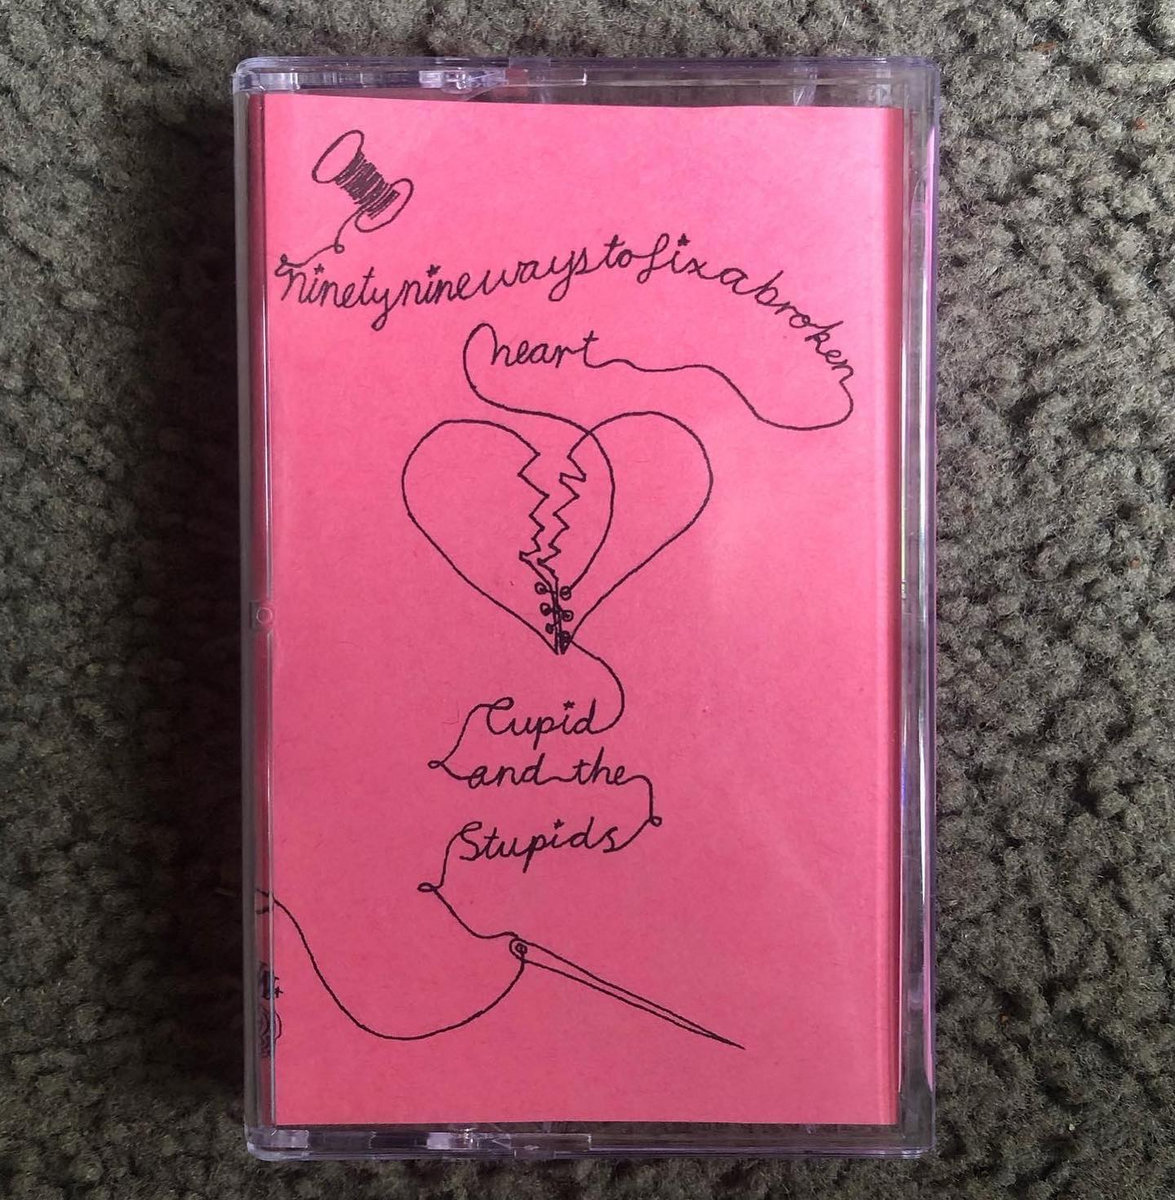 ninety nine ways to fix a broken
heart
Cupid
and the
Stupids